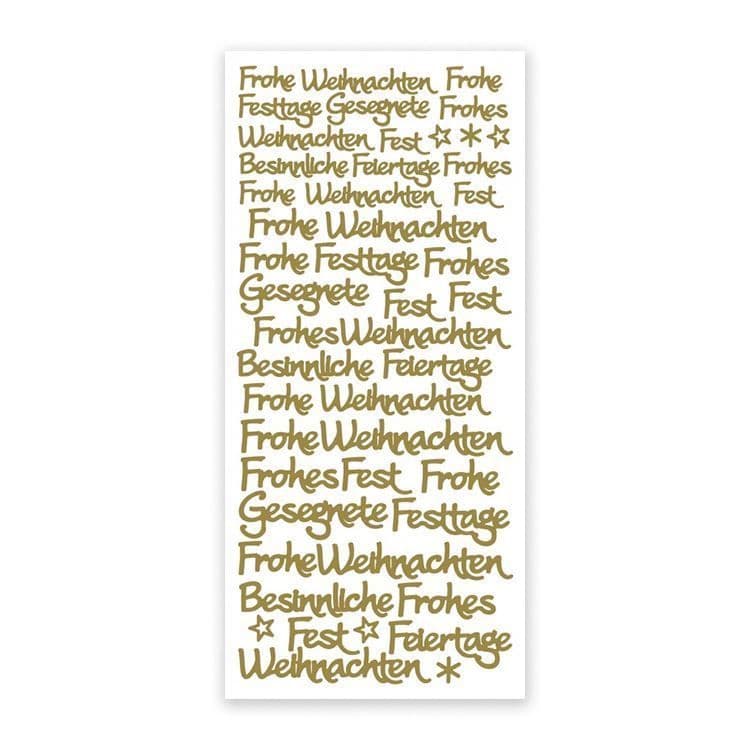 Frohe Weihnachten Frohe
Festtage Gesegnete Frohes
Weihnachten Fest
Besinnliche Feiertage Frohes
Frohe Weihnachten Fest
Frohe Weihnachten
Frohe Festtage Frohes
Gesegnete Fest Fest
Frohes Weihnachten
Besinnliche Feiertage
Frohe Weihnachten
Frohe Weihnachten
Frohes Fest Frohe
Gesegnete Festtage
Frohe Weihnachten
Besinnliche Frohes
Fest Feiertage
Weihnachten